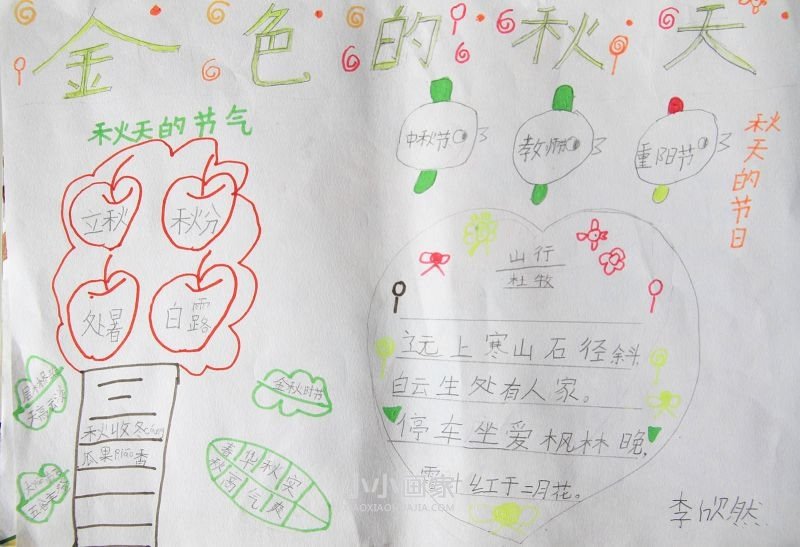 金色的秋天
秋天的节气
立秋
秋分
处暑
白露
三
秋收冬cáng
瓜果piāo香
金秋时节
春华秋实
秋高气爽
中秋节
教师节
重阳节
秋天的节日
山行
杜牧
远上寒山石径斜
白云生处有人家。
停车坐爱枫林晚,
霜叶红于二月花。
李欣然
小小画家
XIAOXIAOHUAJIA.COM